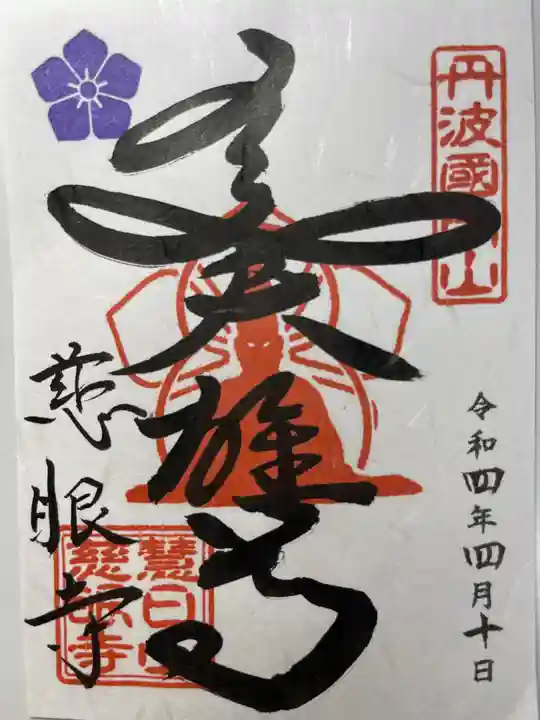 丹波國周山
令和四年四月十日
雄
慈眼寺
慧日山
慈眼寺